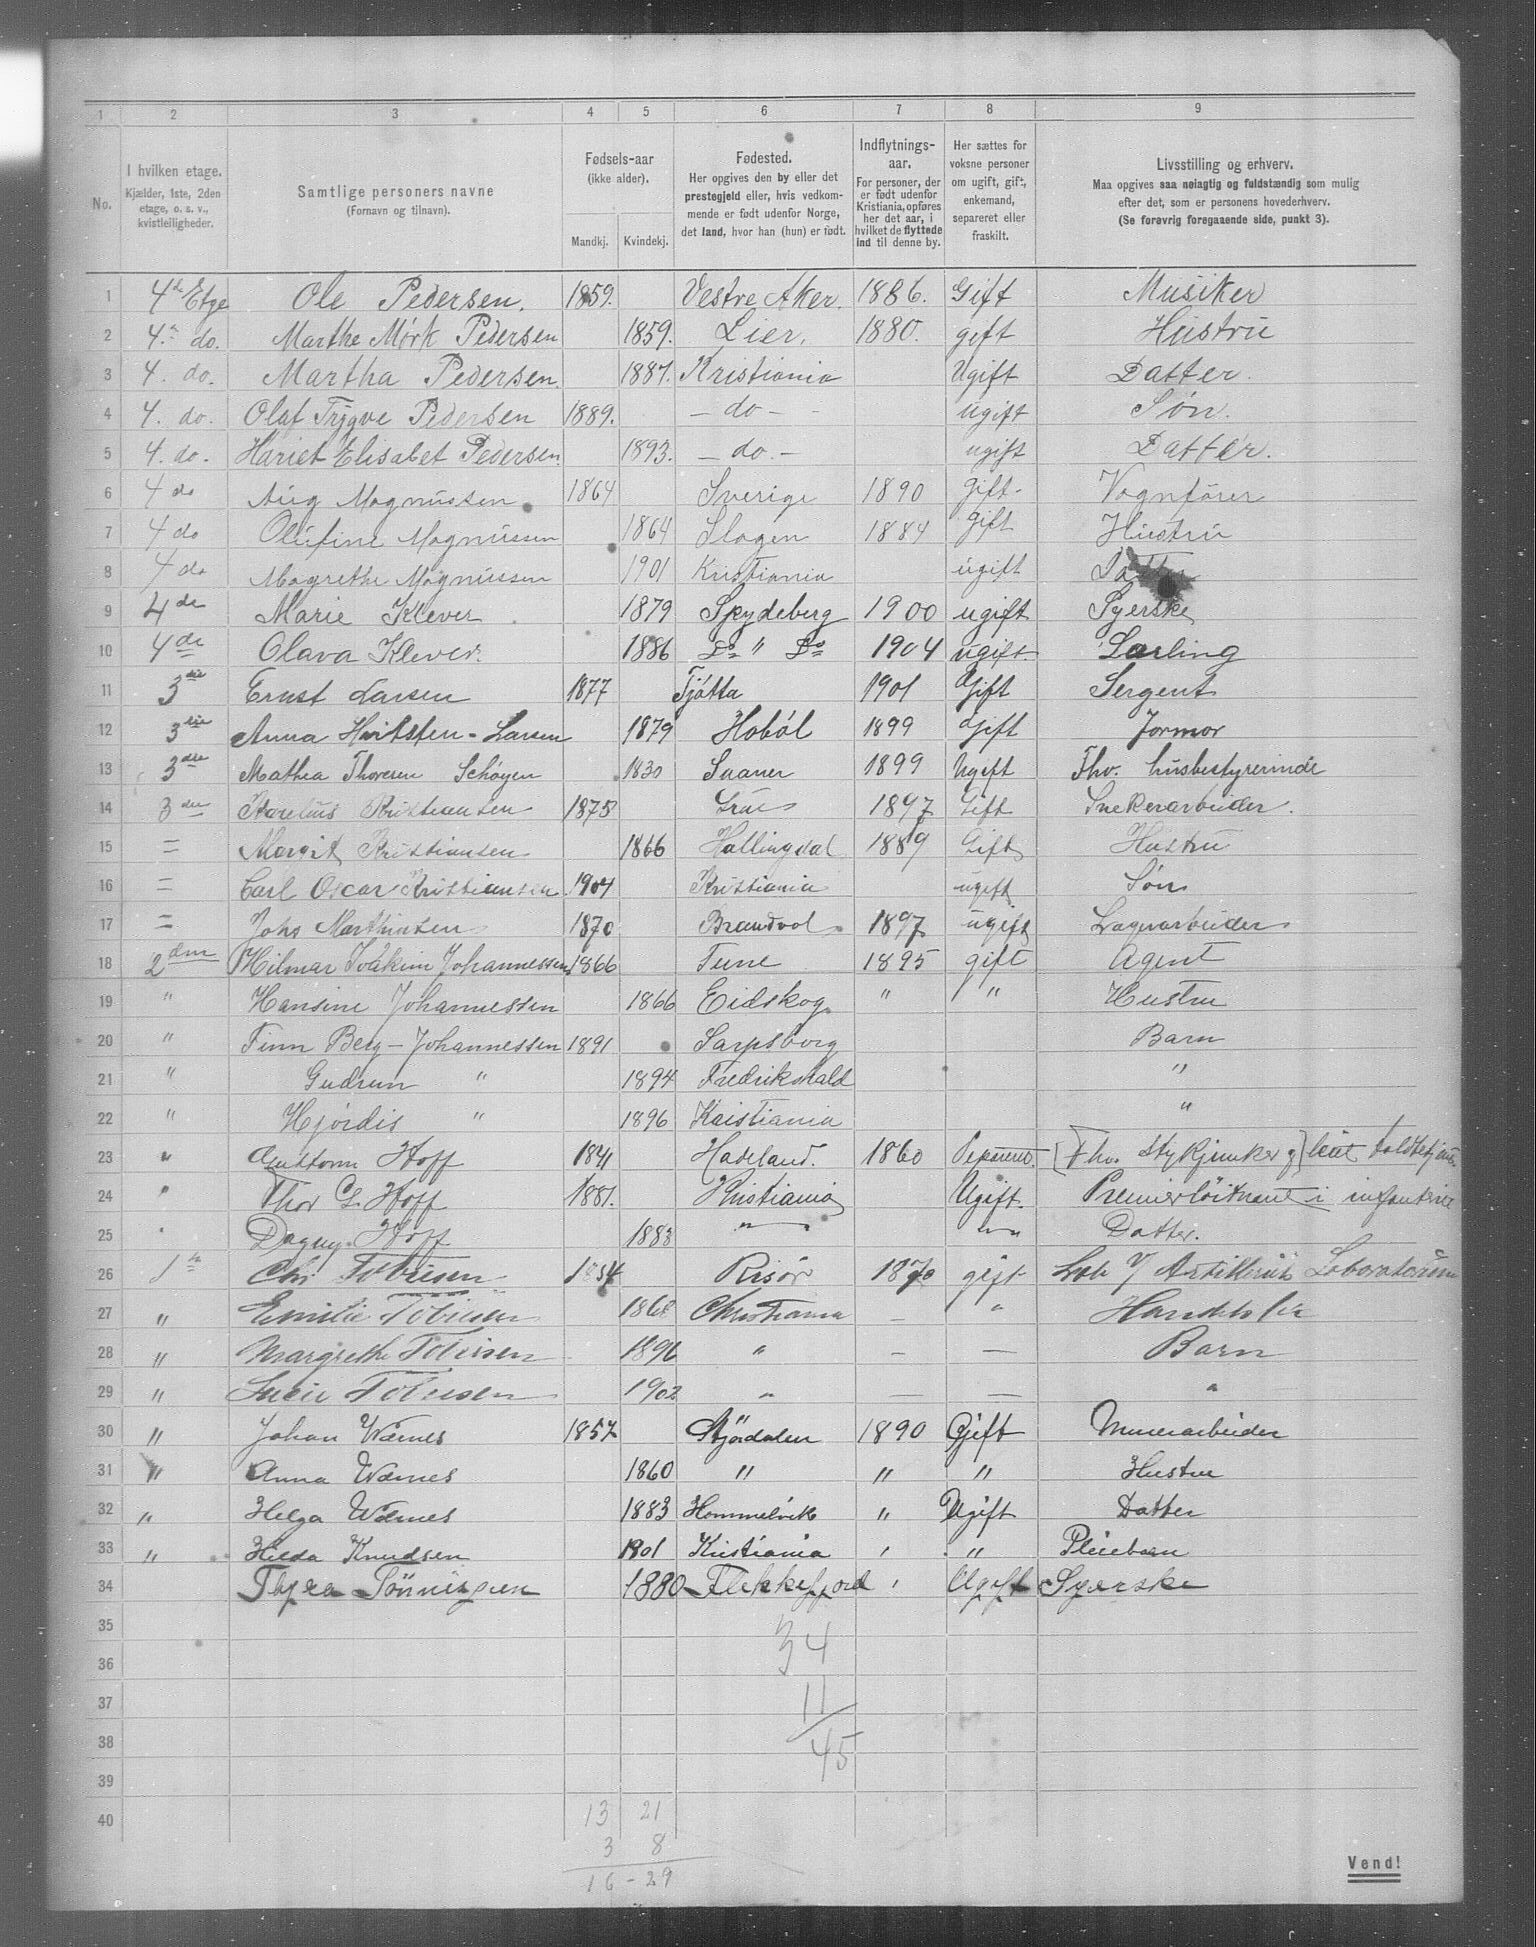 1 2 3 4 5 6 7 8 9
No.
I hvilken etage.
Kjælder, 1ste, 2den
etage, o. s. v.,
kvistleiligheder.
Samtlige personers navne
(Fornavn og tilnavn).
Fødsels-aar
(ikke alder).
Mandkj. Kvindekj.
Fødested.
Her opgives den by eller det
prestegjeld eller, hvis vedkom-
mende er født udenfor Norge,
det land, hvor han (hun) er født.
Indflytnings-
aar.
For personer, der
er født udenfor
Kristiania, opføres
her det aar, i
hvilket de flyttede
ind til denne by.
Her sættes for
voksne personer
om ugift, gift,
enkemand,
separeret eller
fraskilt.
Livsstilling og erhverv.
Maa opgives saa nøiagtig og fuldstændig som mulig
efter det, som er personens hovederhverv.
(Se forøvrig foregaaende side, punkt 3).
1 4d Etge Ole Pedersen. 1859. Vestre Aker. 1886. Gift Musiker
2 4. do. Marthe Mørk Pedersen 1859. Lier. 1880. gift Hustru
3 4. do. Martha Pedersen. 1887. Kristiania Ugift Datter.
4 4. do. Olaf Trygve Pedersen 1889. – do – ugift Søn.
5 4. do. Hariet Elisabet Pedersen. 1893. – do. – ugift Datter.
6 4 do Aug Magnussen 1864 Sverige 1890 Gift Vognfører
7 4 do Olufine Magnussen 1864 Slagen 1884 Gift Hustru
8 4 do Magrethe Magnussen 1901 Kristiania ugift
9 4 de Marie Klever 1879 Spydeberg 1900 ugift Syerske
10 4 de Olava Klever. 1886 Do " Do 1904 ugift. Lærling
11 3die Ernst Larsen 1877 Tjøtta 1901 Gift Sergent
12 3die Anna Hvitsten-Larsen 1879 Hobøl 1899 Gift Jormor
13 3die Mathea Thoresen Schøyen 1830 Saaner 1899 Ugift Fhv. husbestyrerinde
14 3die Kristiansen 1875 1897 Gift Snekerarbeider.
15 = Margit Kristiansen 1866 Hallingdal 1889 Gift Hustru
16 = Carl Oscar Kristiansen 1904 Kristiania ugift Søn
17 = Johs Marthinsen 1870 Brandvol 1897 ugift Lagerarbeider
18 2den Hilmar Joakim Johannessen 1866 Tune 1895 gift Agent
19 " Hansine Johannessen 1866 Eidskog " " Hustru
20 " Finn Berg-Johannessen 1891 Sarpsborg Barn
21 " Gudrun " 1894 Fredrikshald "
22 " Hjørdis " 1896 Kristiania "
23 " Guttorm Hoff 1841 Hadeland. 1860 [Fhv. Stykjunker og]
24 " Thor G. Hoff 1881. Kristiania Ugift. Premierløitnant i infanteriet
25 " Dagny Hoff 1883 " " Datter.
26 1ste Chr Tobiesen 1854 Risør 1870 gift Artilleriets Laboratorium
27 " Emilie Tobiesen 1868 Christiania – "
28 " Margrethe Tobiesen 1896 " – – Barn
29 " Tobiesen 1902 " – – "
30 " Johan Wærnes 1857 Stjørdalen 1890 Gift Murerarbeider
31 " Anna Wærnes 1860 " " " Hustru
32 " Helga Wærnes 1883 Hommelvik " Ugift Datter
33 " Hilda Knudsen 1901 Kristiania " " Pleiebarn
34 Thyra Tönnissen 1880 Flekkefjord " Ugift Syerske
35
36
37
38
39
40
34
11
45
13 21
3 8
16 - 29
Vend!